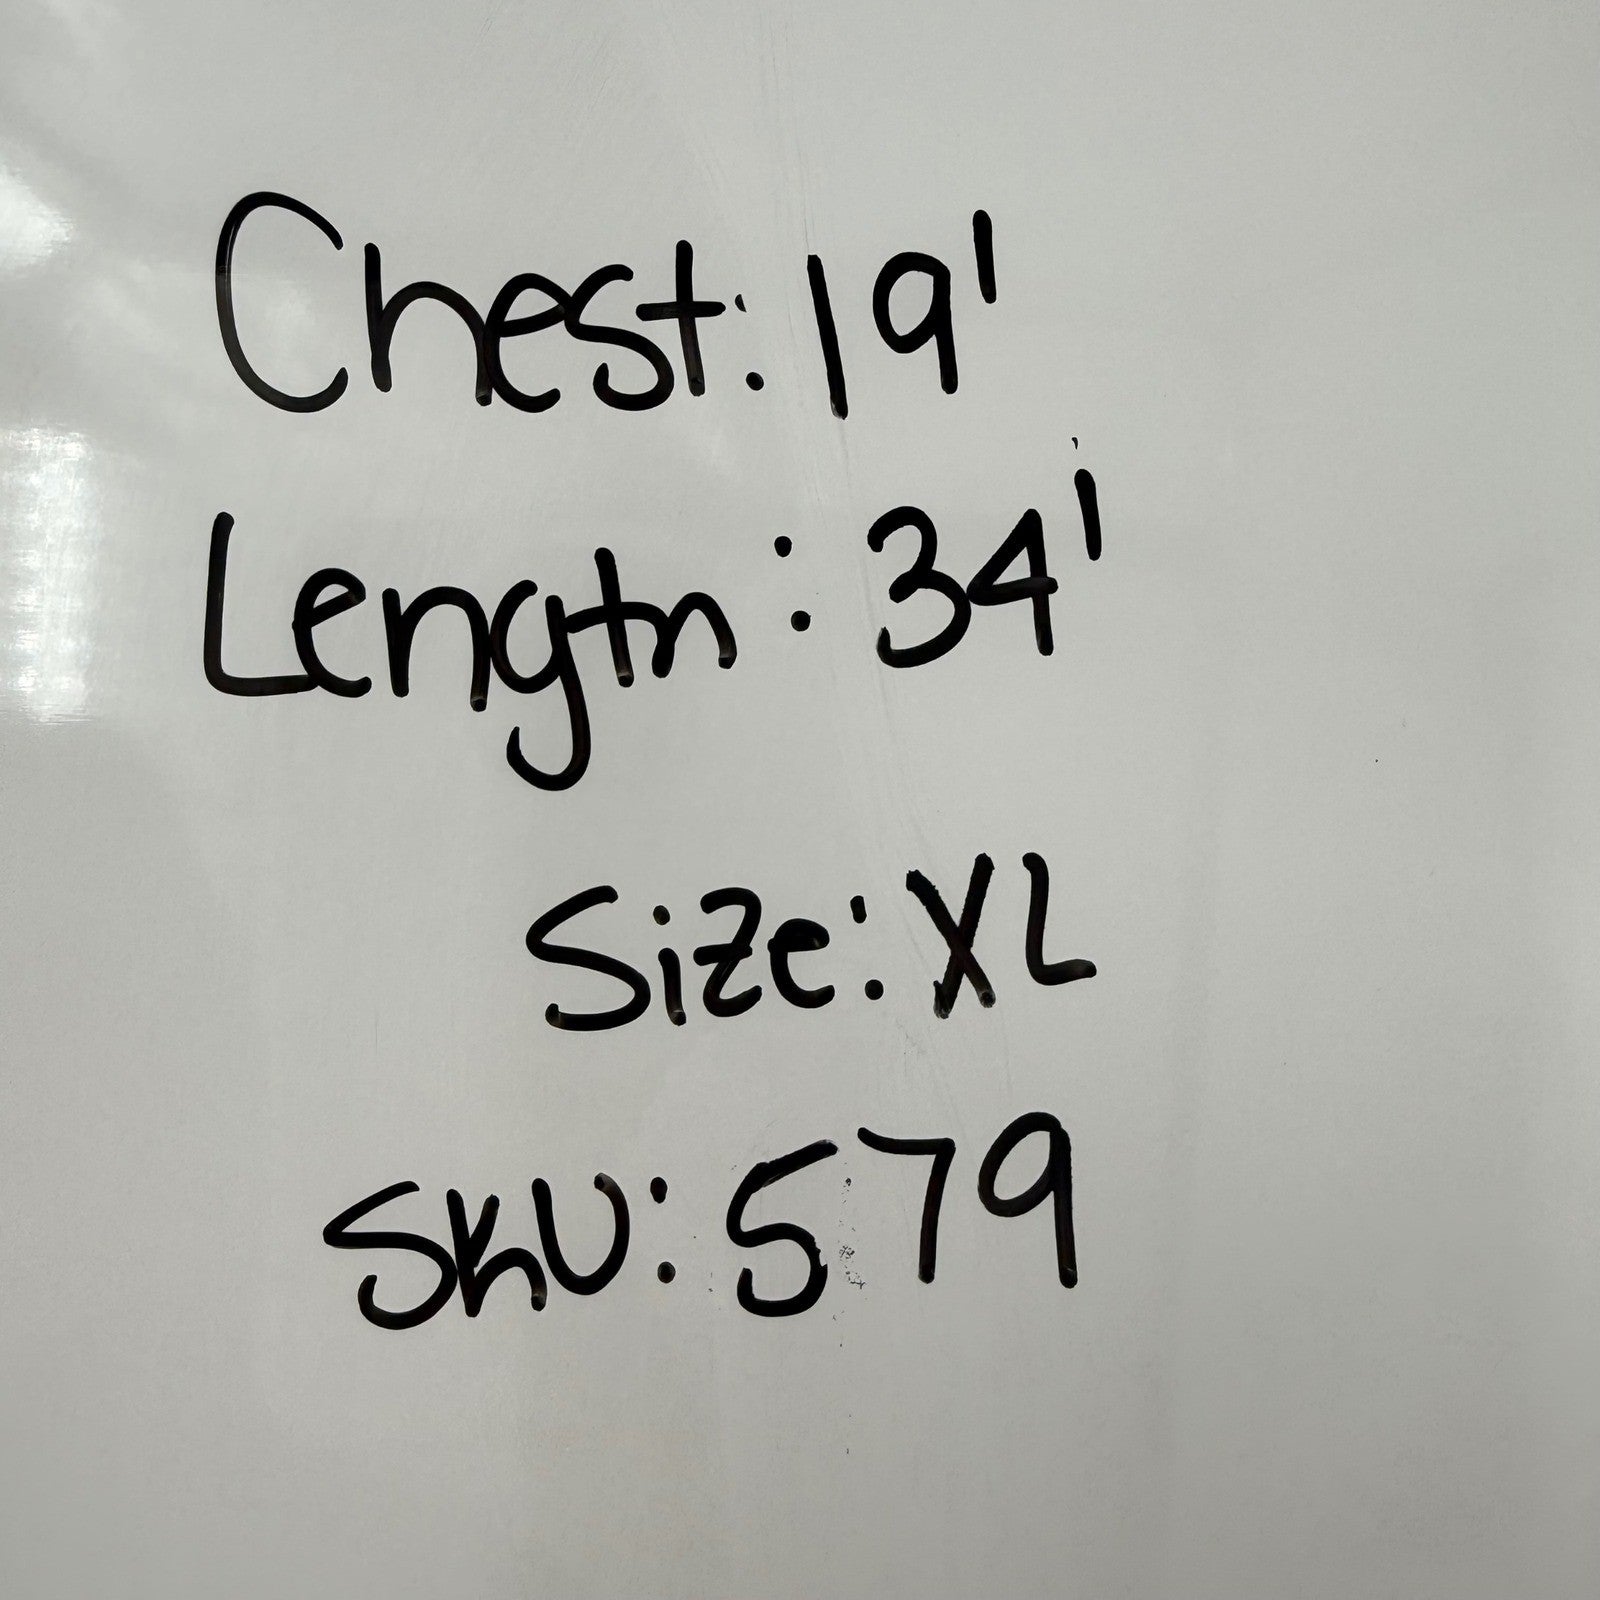 Chest: 19'
Length: 34'
Size: XL
SKU: 579